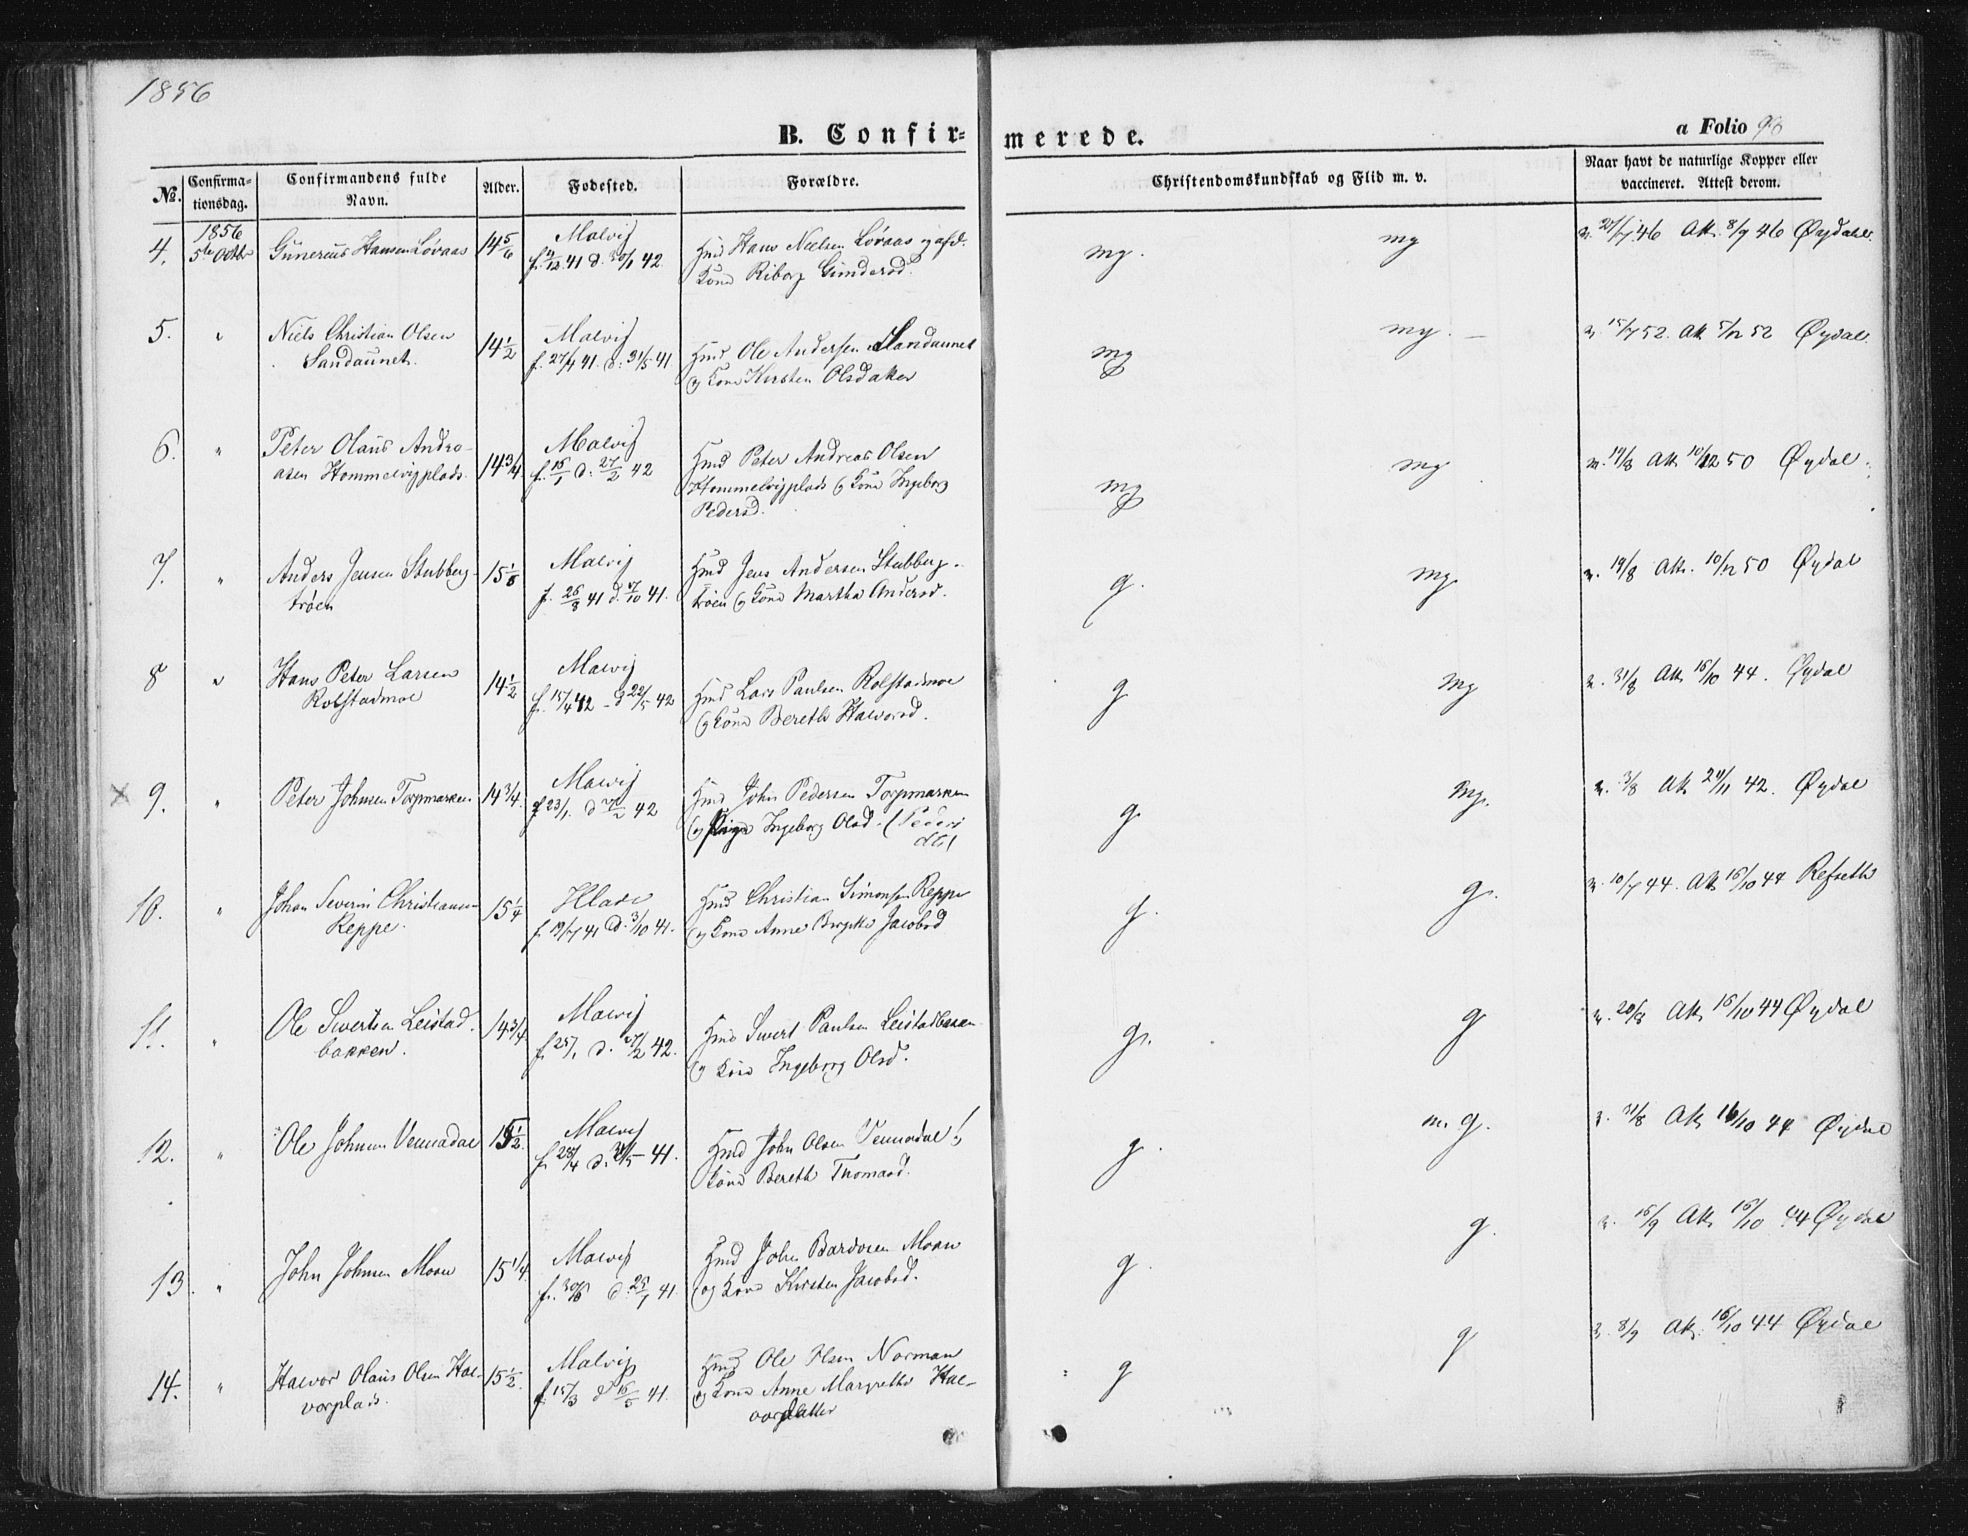 1856
B. Confirmerede.
a Folio 98
No. Confirmationsdag. Confirmandens fulde Navn. Alder. Fodested. Forældre. Christendomskundskab og Flid m. v. Naar havt de naturlige Kopper eller vaccineret. Attest derom.
4. 1856 5te Octbr Gunerius Hansen Løvaas 14 5/6 Malvig
f. 41 d. 30/1 42. Hmd Hans Nielsen Løvaas og afd.
Kone Riborg Gundersd. mg. mg v. 46 Att. 8/9 46 Øydal
5. " Niels Christian Olsen
Sandaunet. 14 1/2 Malvig
f. 27/4 41. d. 31/5 41 Hmd Ole Andersen Sandaunet
og Kone Kirsten Olsdatter mg mg. v. 15/7 52. Att. 5/12 52 Øydal.
6. " Peter Olaus Andreasen
Hommelvigplads. 14 3/4 Malvig
f. 15/1 d. 27/2 42 Hmd Peter Andreas Olsen
Hommelvigplads og Kone Ingeborg
Pedersd. mg mg v. 19/8 Att 10/12 50 Øydal.
7. " Anders Jensen Stubbergtrøen
15 1/6 Malvig
f. 26/8 41 d. 17/10 41. Hmd Jens Andersen Stubbergtrøen
og Kone Martha Andersd. g. mg. v. 19/8 Att. 10/12 50 Øydal
8 " Hans Peter Larsen
Rolstadmoe 14 1/2 Malvig
f. 15/4 42 - d 22/5 42 Hmd Lars Paulsen Rolstadmoe
og Kone Bereth Halvorsd. g mg v. 31/8 Att 16/10 44. Øydal
x 9. " Peter Johnsen Torpmarken 14 3/4. Malvig
f 23/1. d 42 Hmd John Pedersen Torpmarken
og Ingeborg Olsd. g. mg. v. 3/8 Att 42. Øydal
10. " Johan Severin Christiansen
Reppe. 15 1/4 Hlade
f. 19/7 41 d. 3/10 41. Hmd Christian Simonsen Reppe
og Kone Anne Birgitte Jacobsd g. g. v. 10/7 44. Att 16/10 44 Refseth
11. " Ole Sivertsen Leistadbakken.
14 3/4 Malvig
f. 25/1 d. 27/2 42. Hmd Sivert Paulsen Leistadbaken
og Kone Ingeborg Olsd. g. g v. 20/8 Att. 16/10 44 Øydal
12. " Ole Johnsen Vennadal 15 1/2. Malvig
f. 28/4 d. 31/5 41. Hmd John Olsen Vennadal og
Kone Bereth Thomasd. g. m. g. v. 31/8 Att 16/10 44 Øydal
13. " John Johnsen Moan 15 1/4. Malvig
f. 30/6 d. 25/7 41. Hmd John Bardosen Moan
og Kone Kirsten Jacobsd. g. g. v. 16/9 Att. 16/10 44 Øydal
14. " Halvor Olaus Olsen Halvorplads.
15 1/2. Malvig
f. 15/3 d 16/5 41. Hmd Ole Olsen Norman
og Kone Anne Margrethe Halvorsdatter
g g v. 8/9 Att. 16/10 44 Øydal